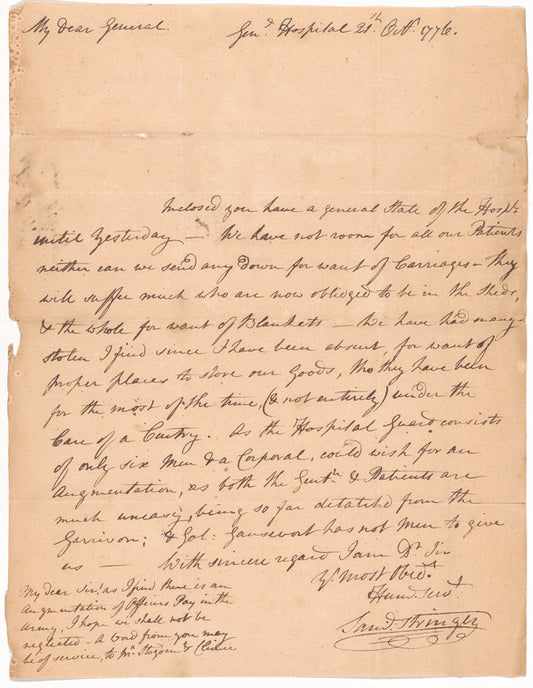 My Dear General.
Genl. Hospital 21st. Octr. 1776.
Inclosed you have a general State of the Hospl.
until Yesterday — We have not room for all our Patients
neither can we send any down for want of Carriages – they
will suffer much who are now obliged to be in the Sheds,
& the whole for want of Blankets – we have had many
stolen I find since I have been absent, for want of
proper places to store our Goods, tho they have been
for the most of the time, (& not entirely) under the
Care of a Centry. As the Hospital Guard consists
of only six Men & a Corporal, could wish for an
Augmentation, as both the Gentn. & Patients are
much uneasy, being so far detatch'd from the
Garrison; & Col: Gansevort has not Men to give
us — With sincere regard I am Dr. Sir
Yr. Most Obedt.
Hum. Servt.
Saml. Stringer
My dear Sir! as I find there is an
Augmentation of Officers Pay in the
Army, I hope we shall not be
neglected – A word from you may
be of service, to Mr. &